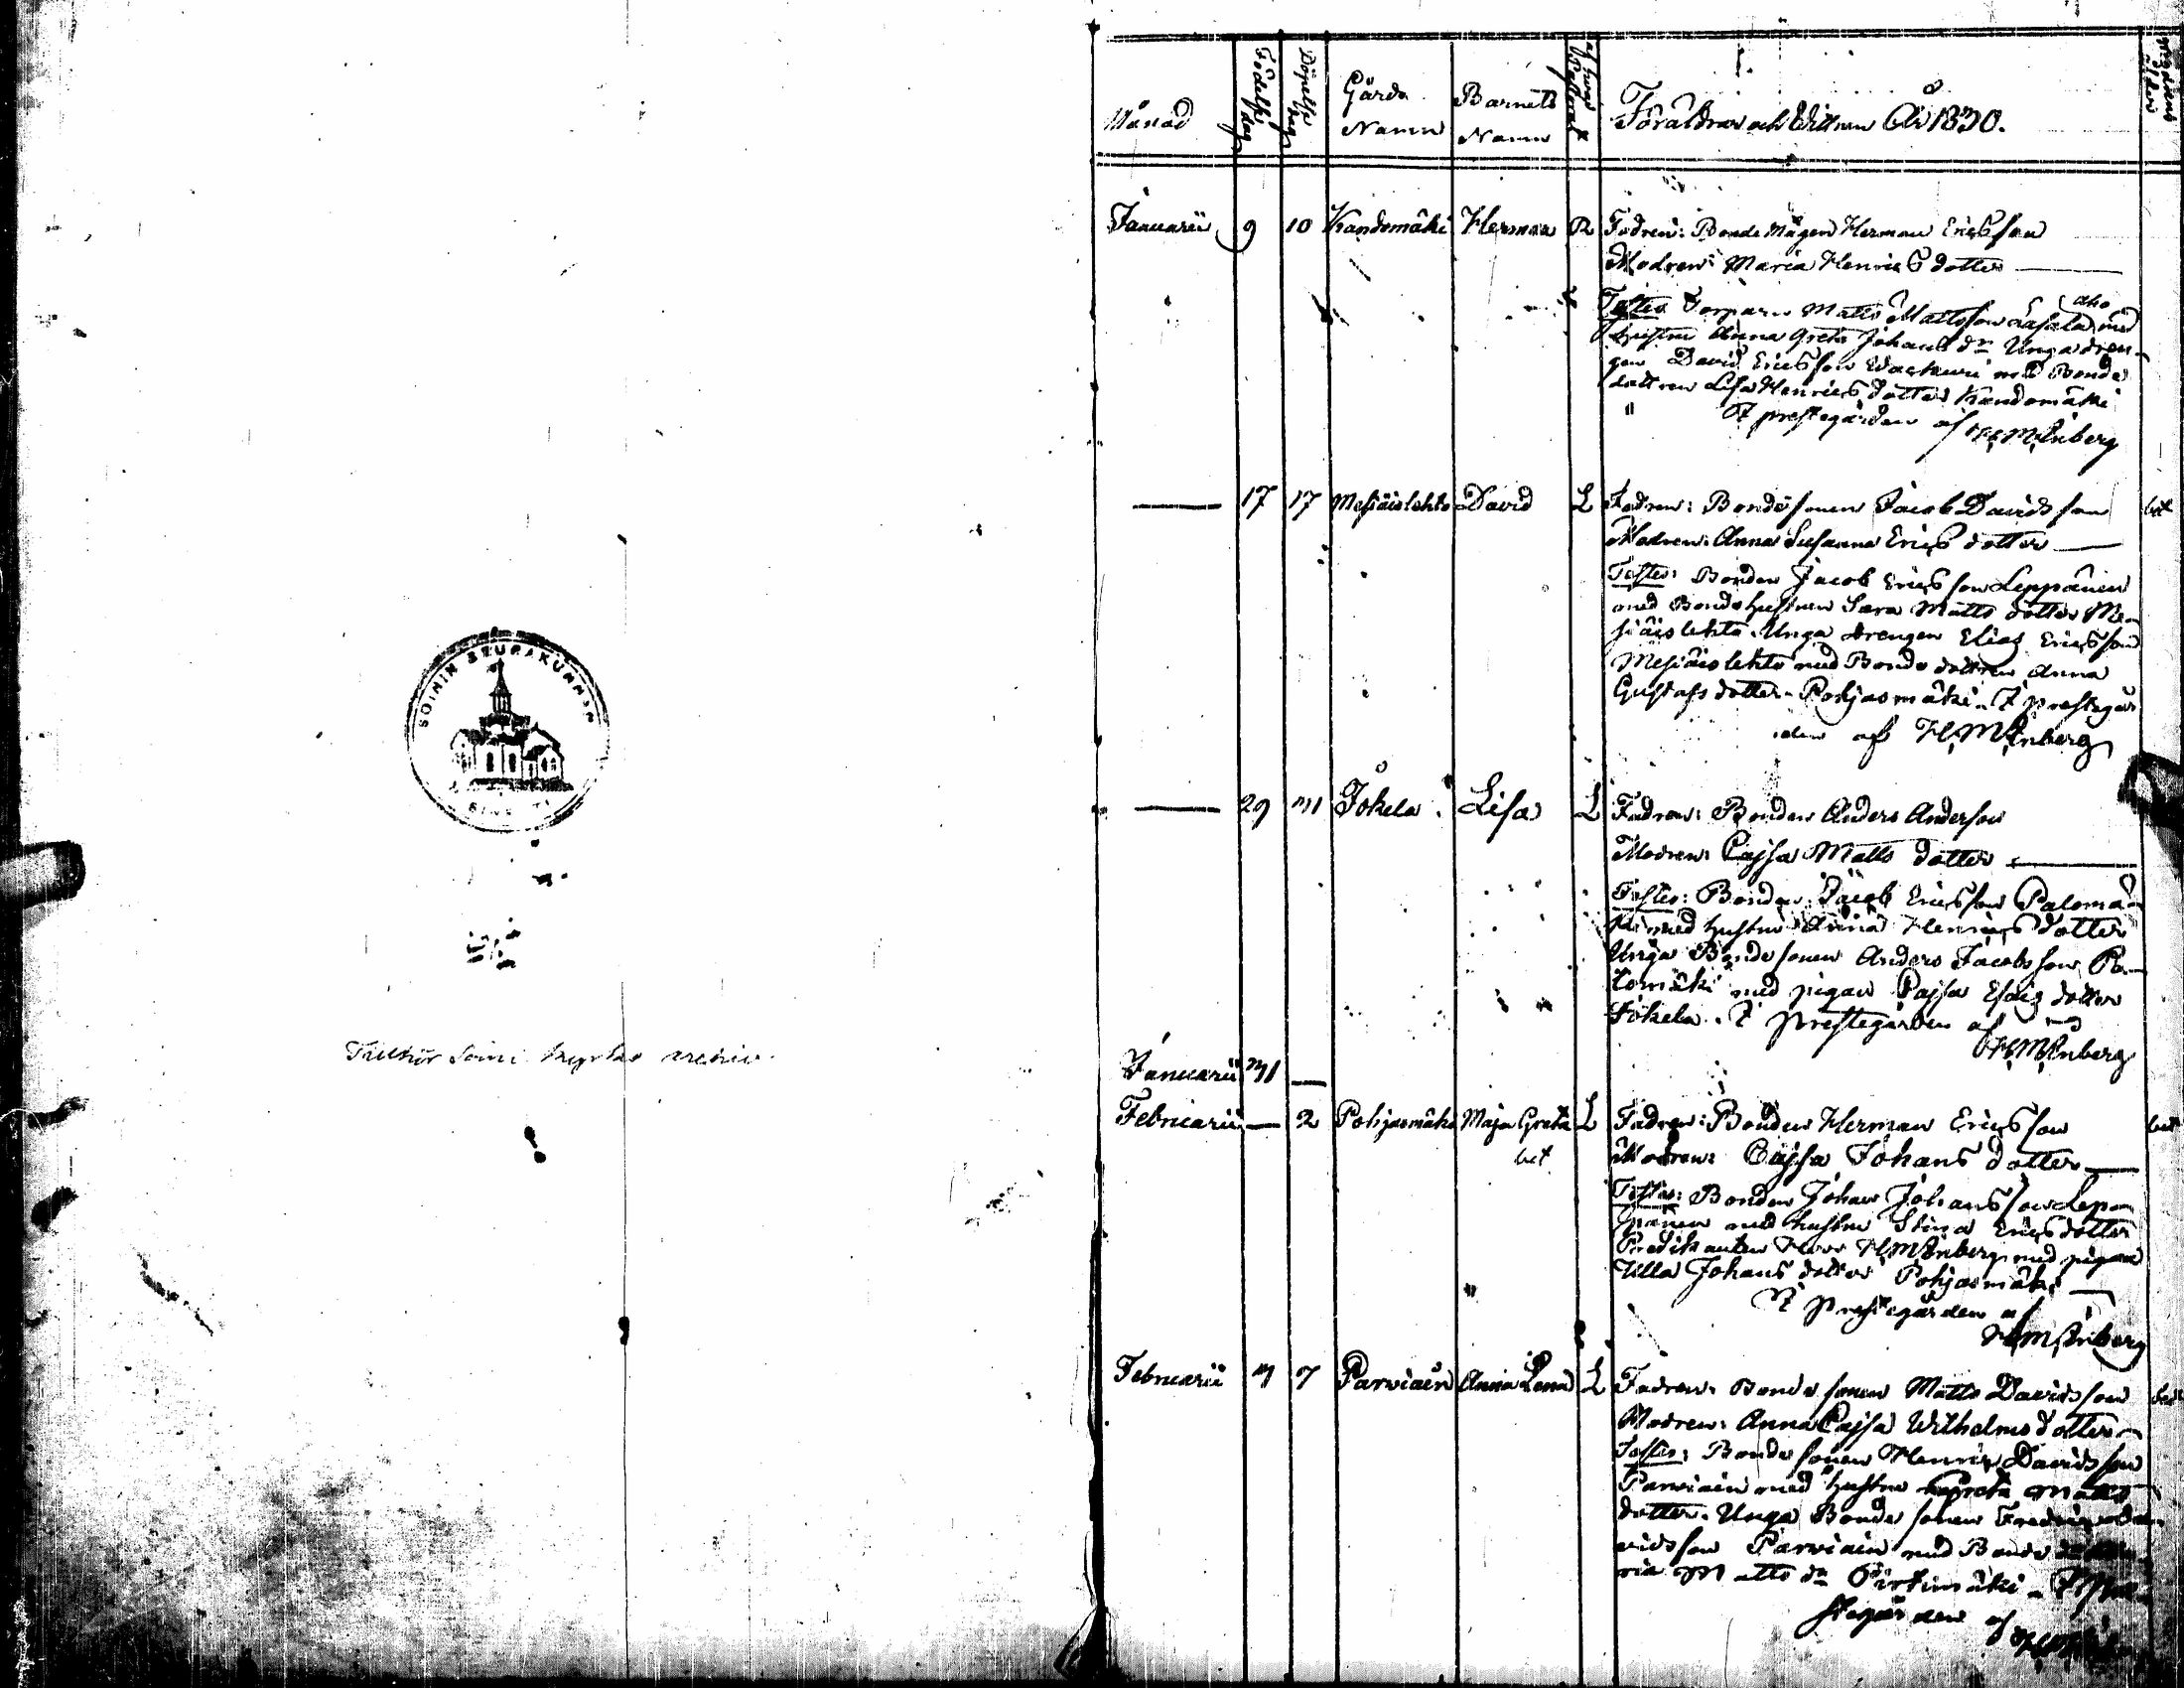 SOININ SEURAKUNNAN
Tillhör Soini kyrkas archiv.
Månad
Födelse dag
Döpelse dag
Gårds Namn
Barnets Namn
Föräldrar och Wittnen År 1830.
Januarii 9 10 Kandomäki Herman R Fadren: Bonde Mågen Herman Ericsson
Modren: Maria Henrics dotter
Testes Torparn Matts Mattsson aho med
hustru Anna Greta Johans dr Unga dren-
gen David Ericsson med Bonde
dottren Lisa Henrics dotter Kandomäki
I prestegården af H.M. Enberg
17 17 Mesiäislehto David L Fadren: Bondesonen Jacob Davidsson bet
Modren: Anna Susanna Erics dotter
Testes: Bonden Jacob Ericsson Leppänen
med Bondehustrun Sara Matts dotter Me-
siäislehto. Unga drengen Elias Ericsson
Mesiäislehto med Bonde dottren Anna
Gustafs dotter Pohjasmäki. I prestegår
den af H.M. Enberg
29 31 Jokela Lisa L Fadren: Bonden Anders Andersson
Modren: Cajsa Matts dotter
Testes: Bonden Jacob Ericsson Paloma-
ki med hustru Anna Henrics dotter
Unga Bondesonen Anders Jacobsson Pa-
lomäki med pigan Cajsa Esaias dotter
Jokela. I prestegården af
H.M. Enberg
Januarii 31
Februarii 2 Pohjasmäki Maja Greta L Fadren: Bonden Herman Ericsson bet
bet Modren: Cajsa Johans dotter
Testes: Bonden Johan Johansson Lep-
pänen med hustru Stina Erics dotter
Predikanten Herr H.M. Enberg med pigan
Ulla Johans dotter Pohjasmäki
I prestegården af
H.M. Enberg
Februarii 3 7 Parviain Anna Lena L Fadren: Bonde sonen Matts Davidsson bet
Modren: Anna Cajsa Wilhelms dotter
Testes: Bonde sonen Henric Davidsson
Parviain med hustru Greta Matts
dotter. Unga Bonde sonen Fredric Da-
vidsson Parviain med Bonde
ria Matts dr Pirtimäki. I Pre-
stegården af